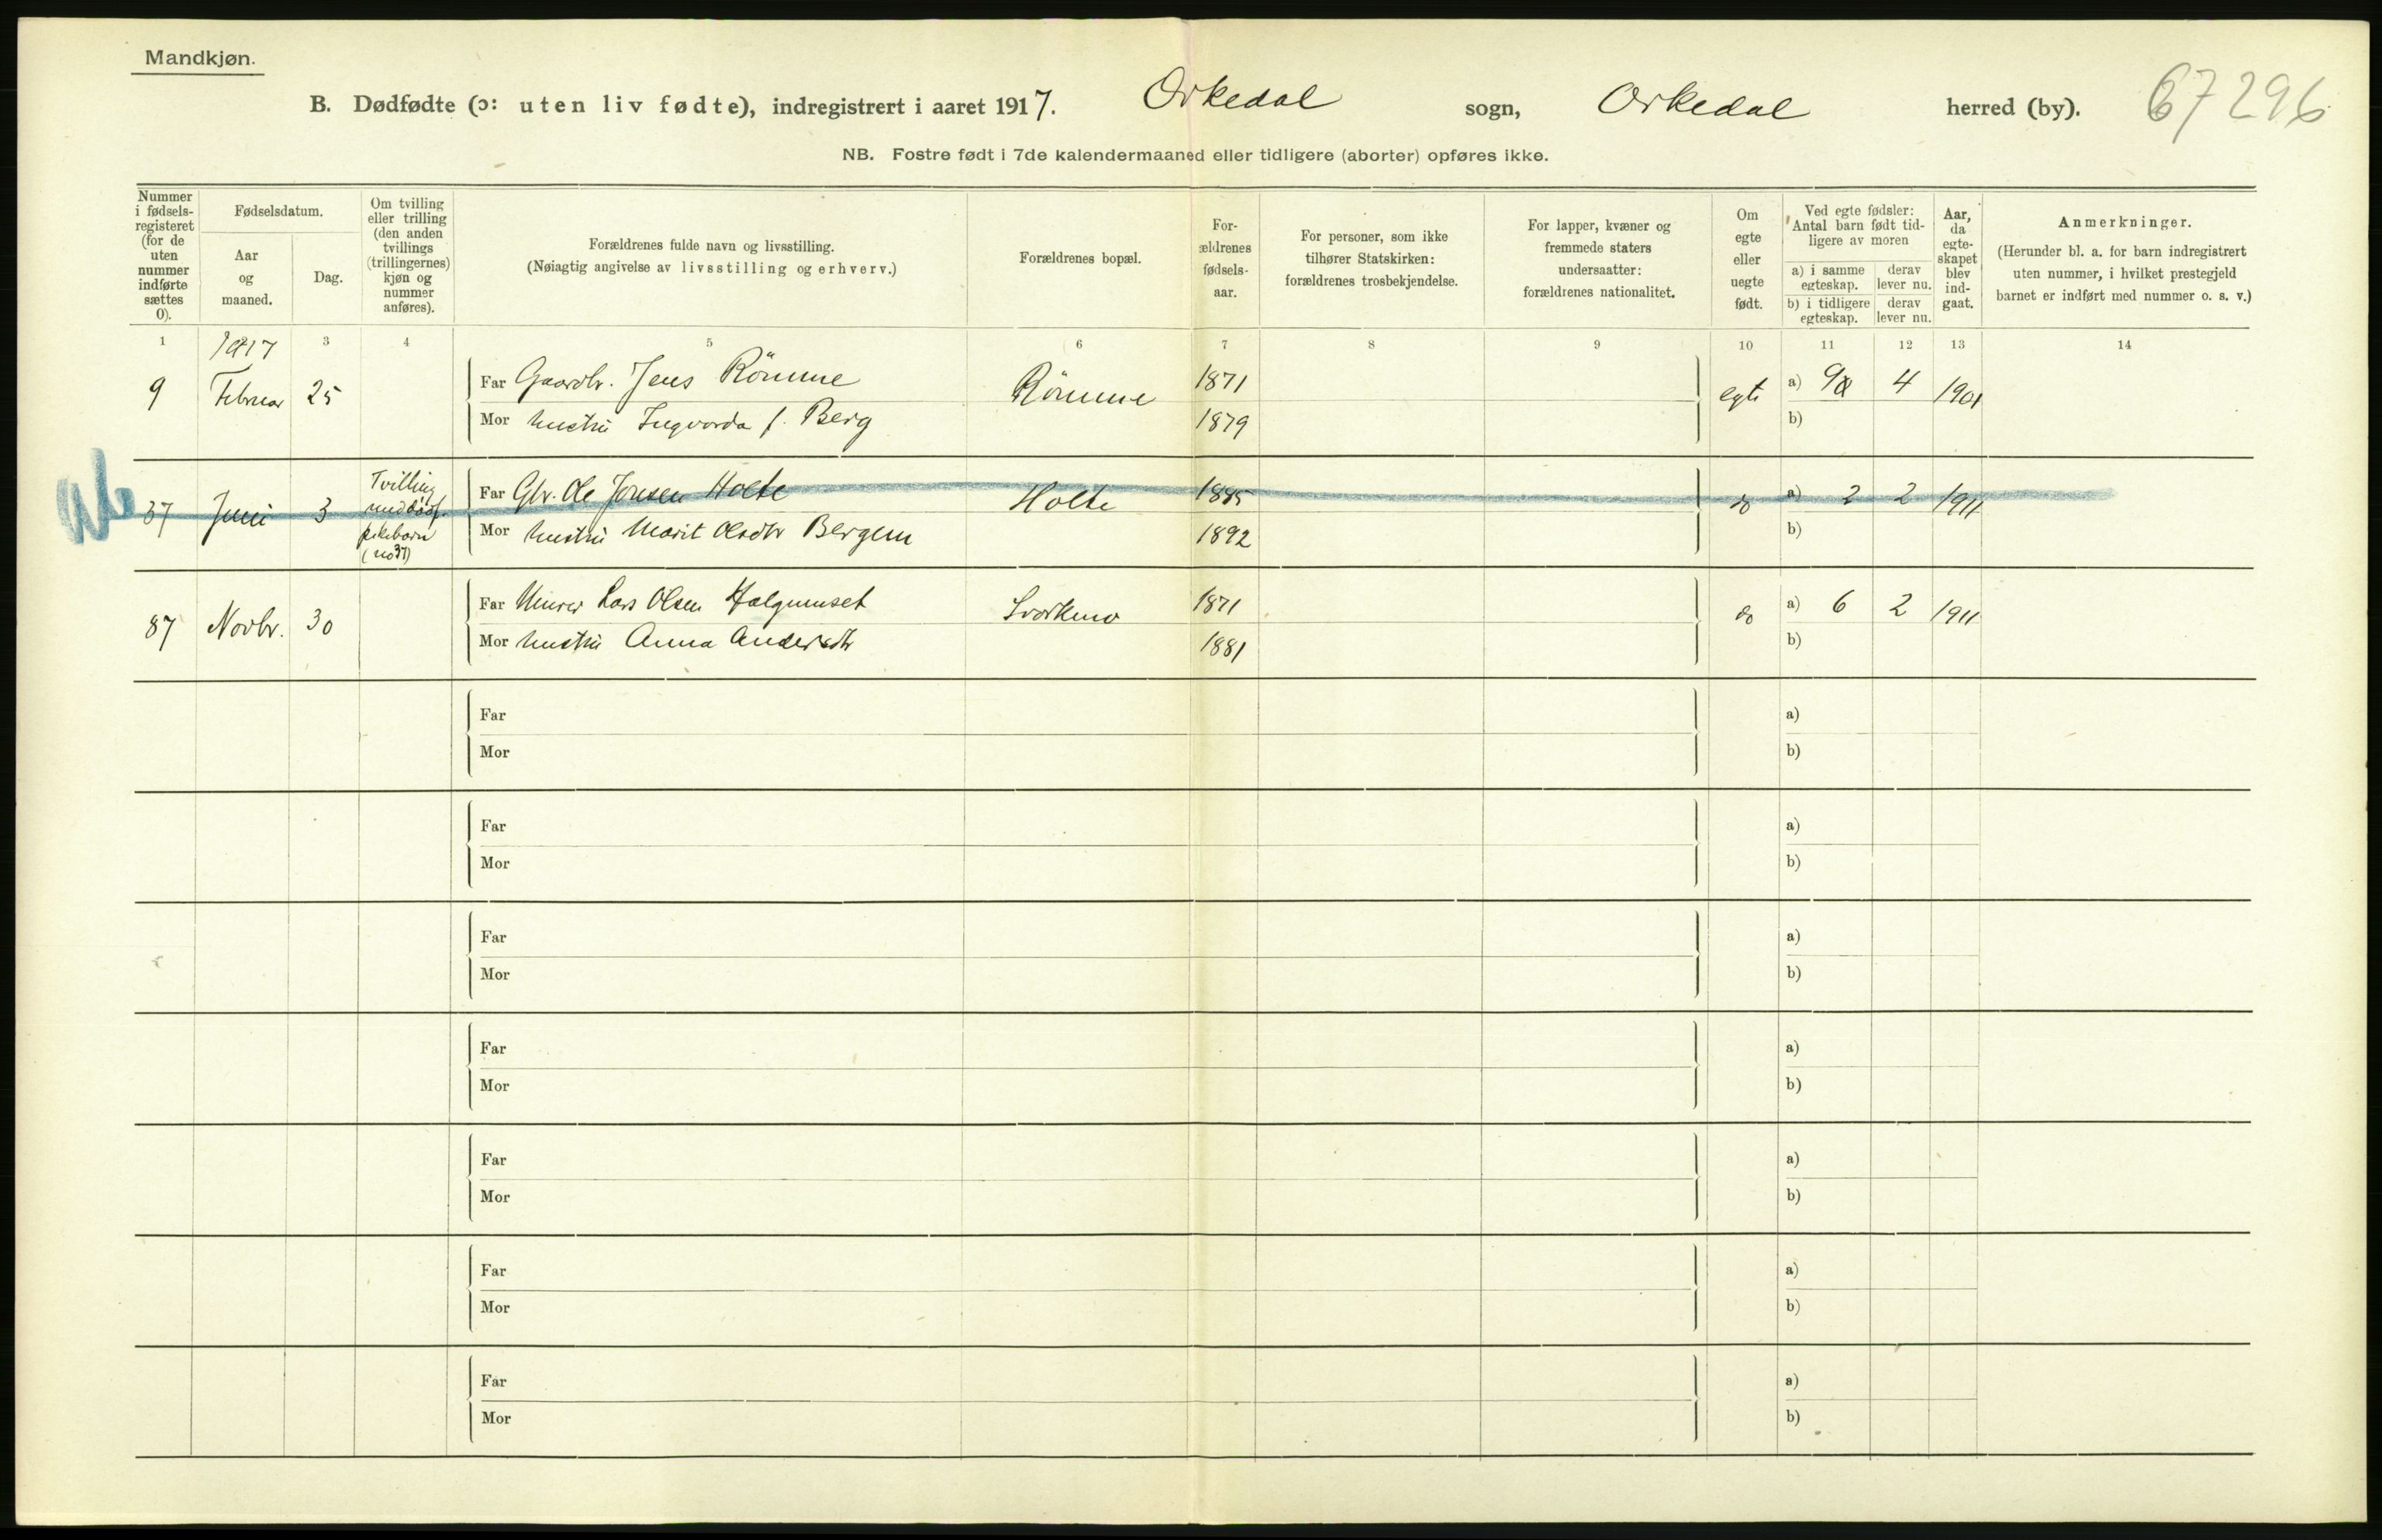 Mandkjøn.
B. Dødfødte (ɔ: uten liv fødte), indregistrert i aaret 1917. Orkedal sogn, Orkedal herred (by). 67 296
NB. Fostre født i 7de kalendermaaned eller tidligere (aborter) opføres ikke.
Nummer
i fødsels-
registeret
(for de
uten
nummer
indførte
sættes
0).
Fødselsdatum.
Aar
og
maaned.
Dag.
Om tvilling
eller trilling
(den anden
tvillings
(trillingernes)
kjøn og
nummer
anføres).
Forældrenes fulde navn og livsstilling.
(Nøiagtig angivelse av livsstilling og erhverv.)
Forældrenes bopæl.
For-
ældrenes
fødsels-
aar.
For personer, som ikke
tilhører Statskirken:
forældrenes trosbekjendelse.
For lapper, kvæner og
fremmede staters
undersaatter:
forældrenes nationalitet.
Om
egte
eller
uegte
født.
Ved egte fødsler:
Antal barn født tid-
ligere av moren
a) i samme
egteskap.
derav
lever nu.
b) i tidligere
egteskap.
derav
lever nu.
Aar,
da
egte-
skapet
blev
ind-
gaat.
Anmerkninger.
(Herunder bl. a. for barn indregistrert
uten nummer, i hvilket prestegjeld
barnet er indført med nummer o. s. v.)
1 1917 3 4 5 6 7 8 9 10 11 12 13 14
9 Februar 25 Far Gaardbr. Jens Römme Römme 1871 egte a) 9 4 1901
Mor hustru Ingvarda f. Berg 1879 b)
37 Juni 3 Tvilling
med dødf.
pikebarn
(no 37)
Far Gbr. Ole Jonsen Holte Holte 1885 do a) 2 2 1911
Mor hustru Marit Olsdtr Bergem 1892 b)
87 Novbr. 30 Far Murer Lars Olsen Halgunset Svorkmo 1871 do a) 6 2 1911
Mor hustru Anna Andersdtr 1881 b)
Far a)
Mor b)
Far a)
Mor b)
Far a)
Mor b)
Far a)
Mor b)
Far a)
Mor b)
Far a)
Mor b)
Far a)
Mor b)